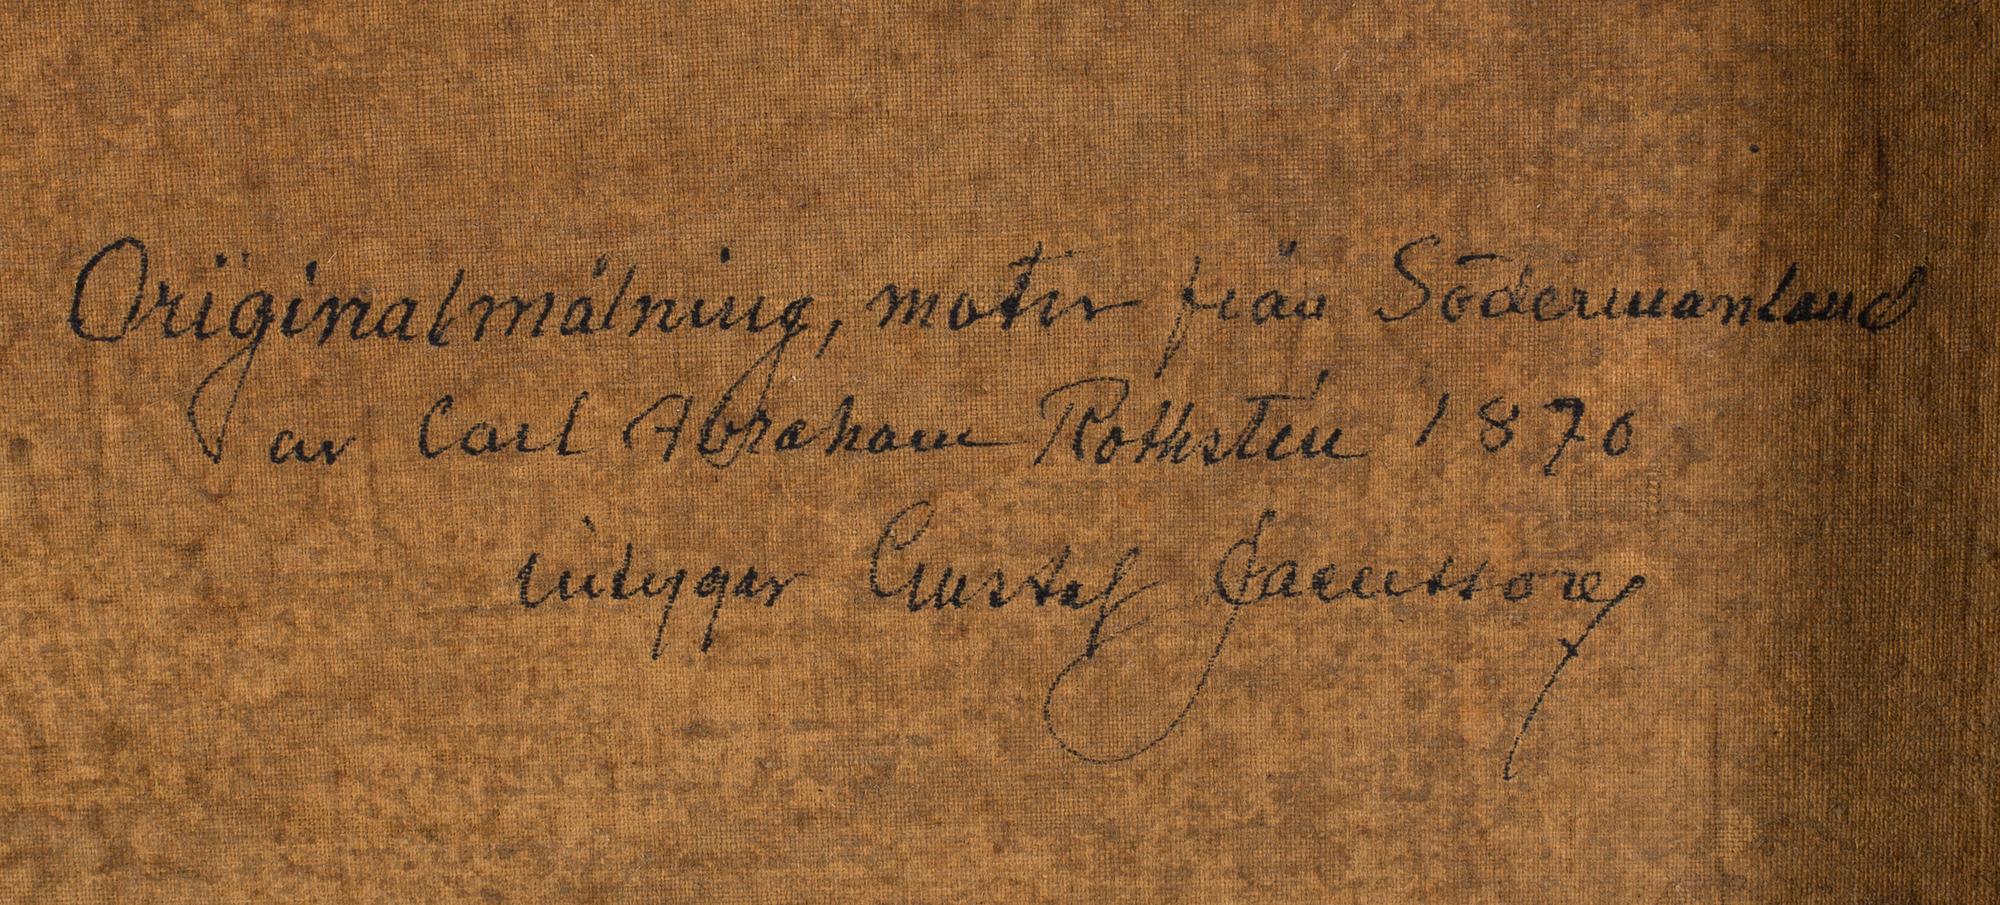 Originalmålning, motiv från Södermanland
av Carl Abraham Rothstén 1870
intygar Gustaf